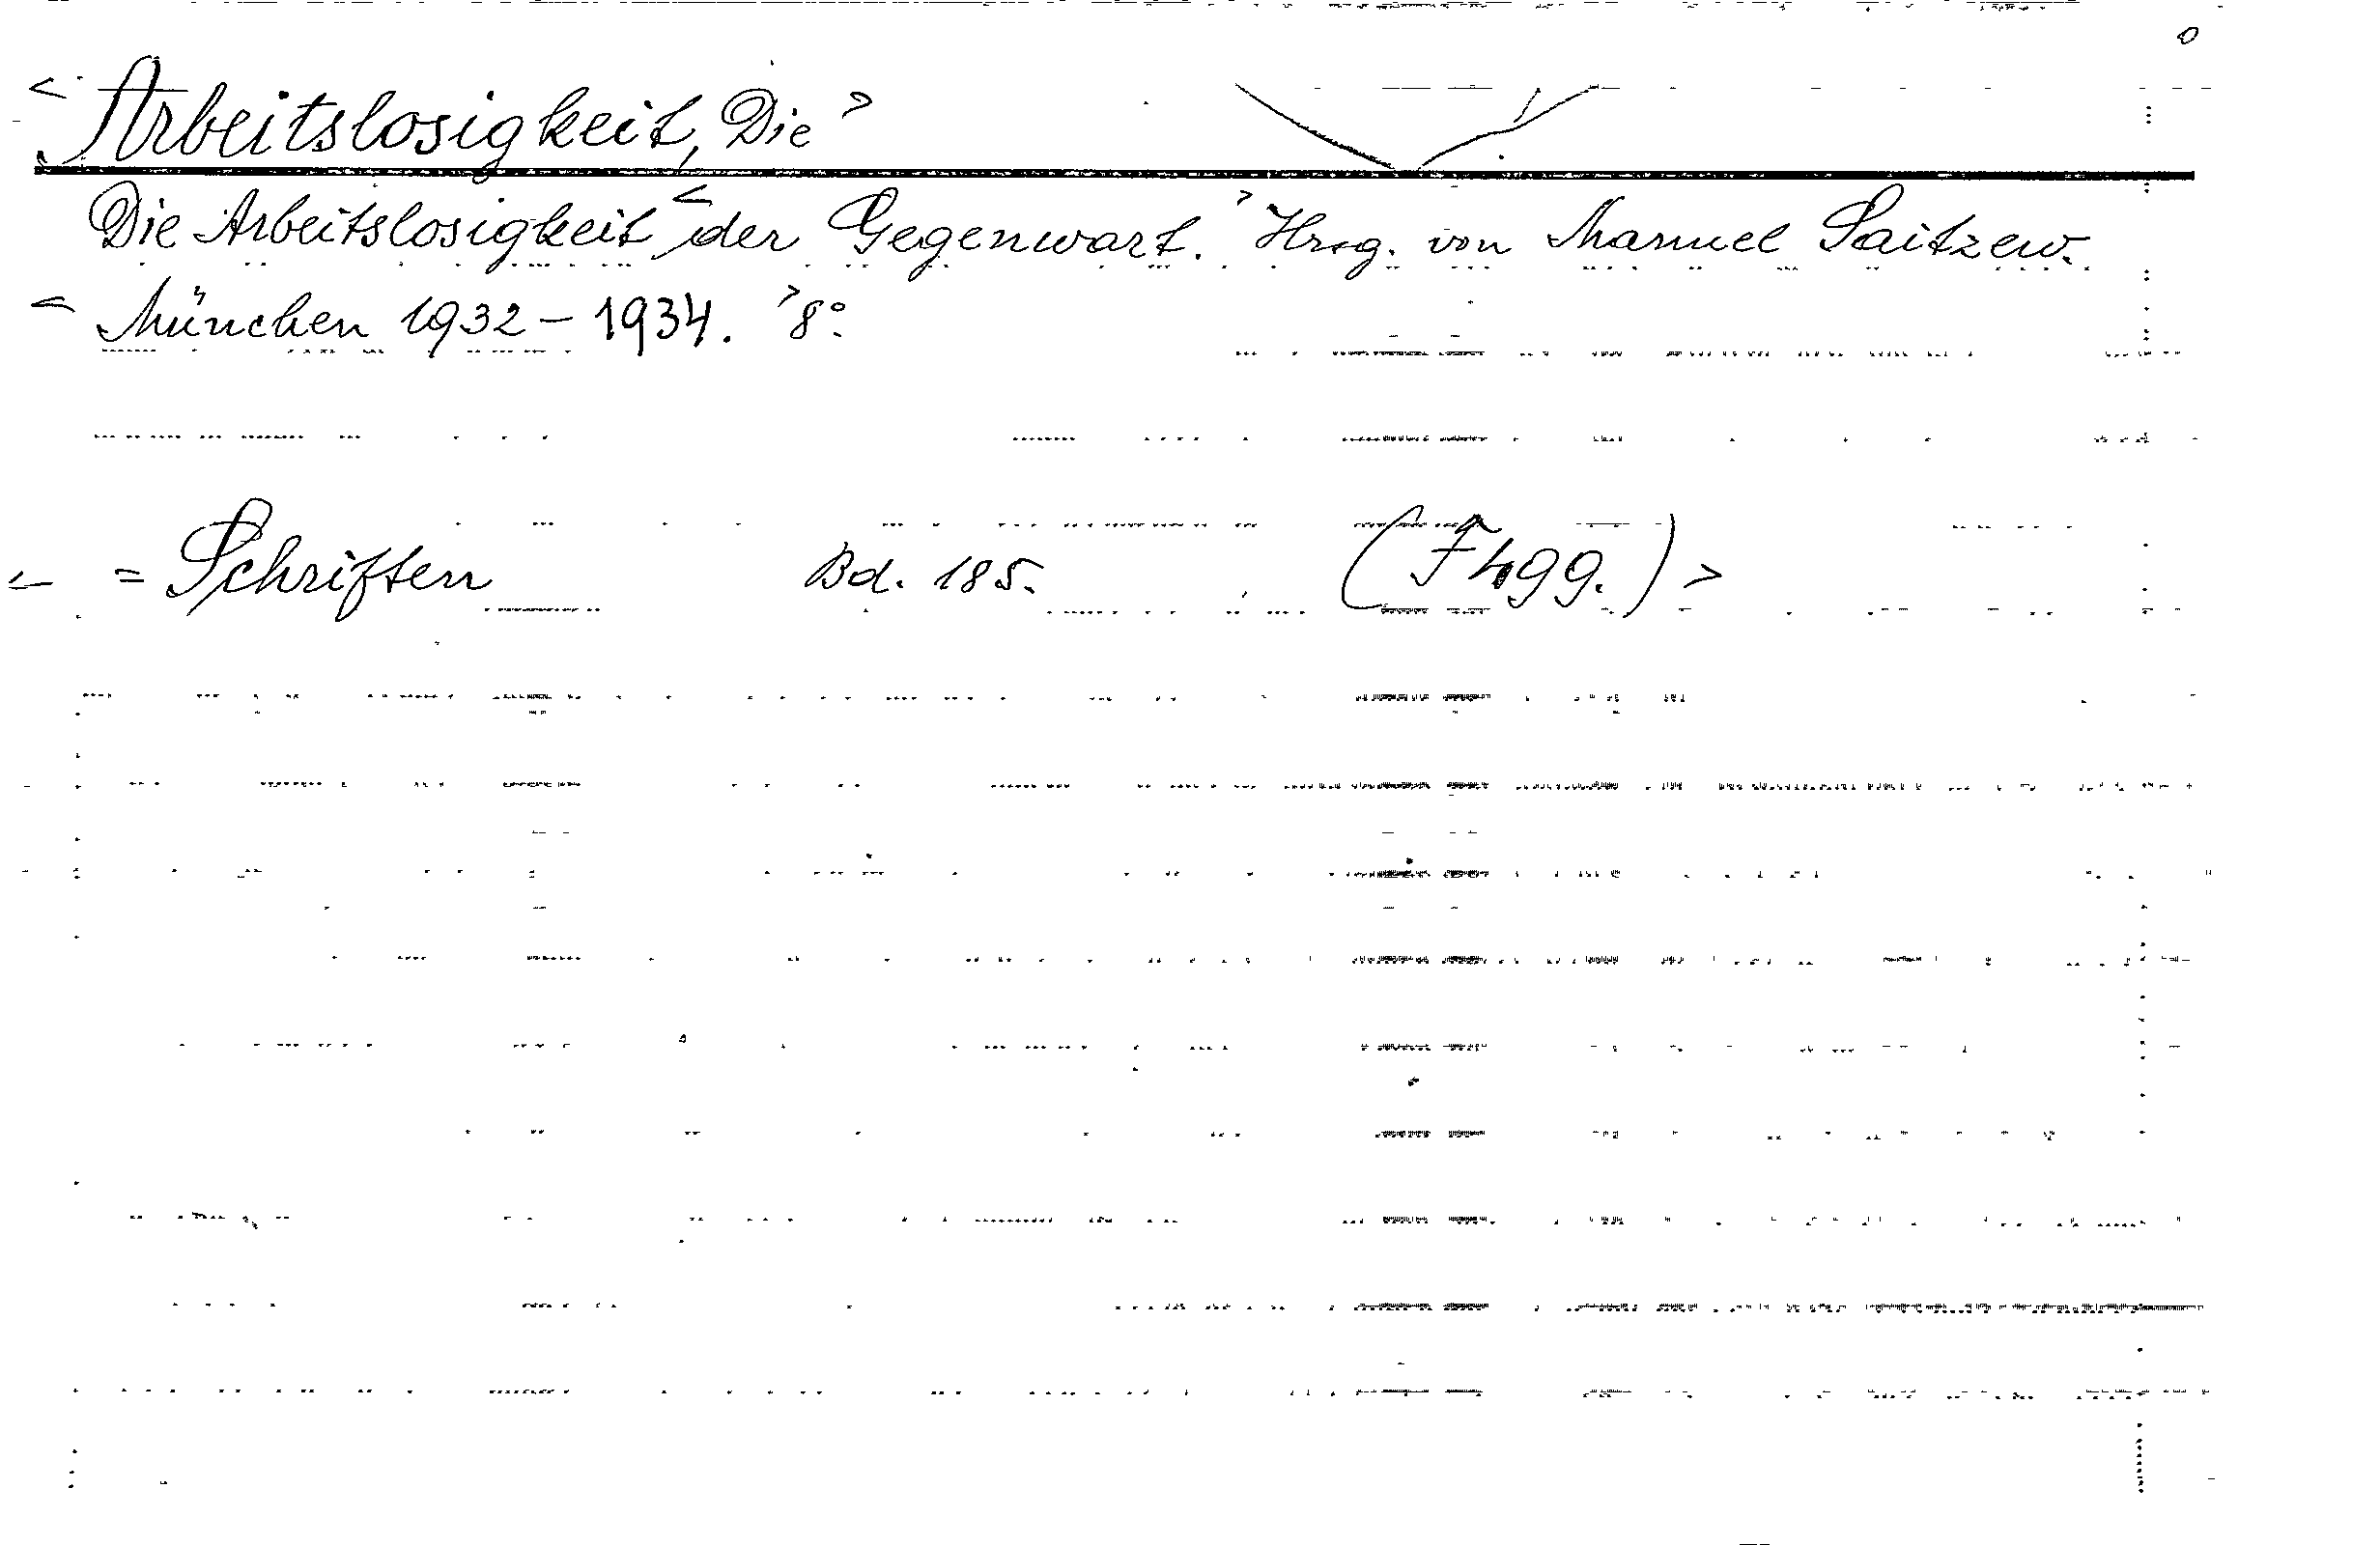 <Arbeitslosigkeit, Die>
Die Arbeitslosigkeit <der Gegenwart.> Hrsg. von Manuel Saitzew.
<München 1932-1934.> 8°.
< = Schriften Bd. 185. (F 499.) >